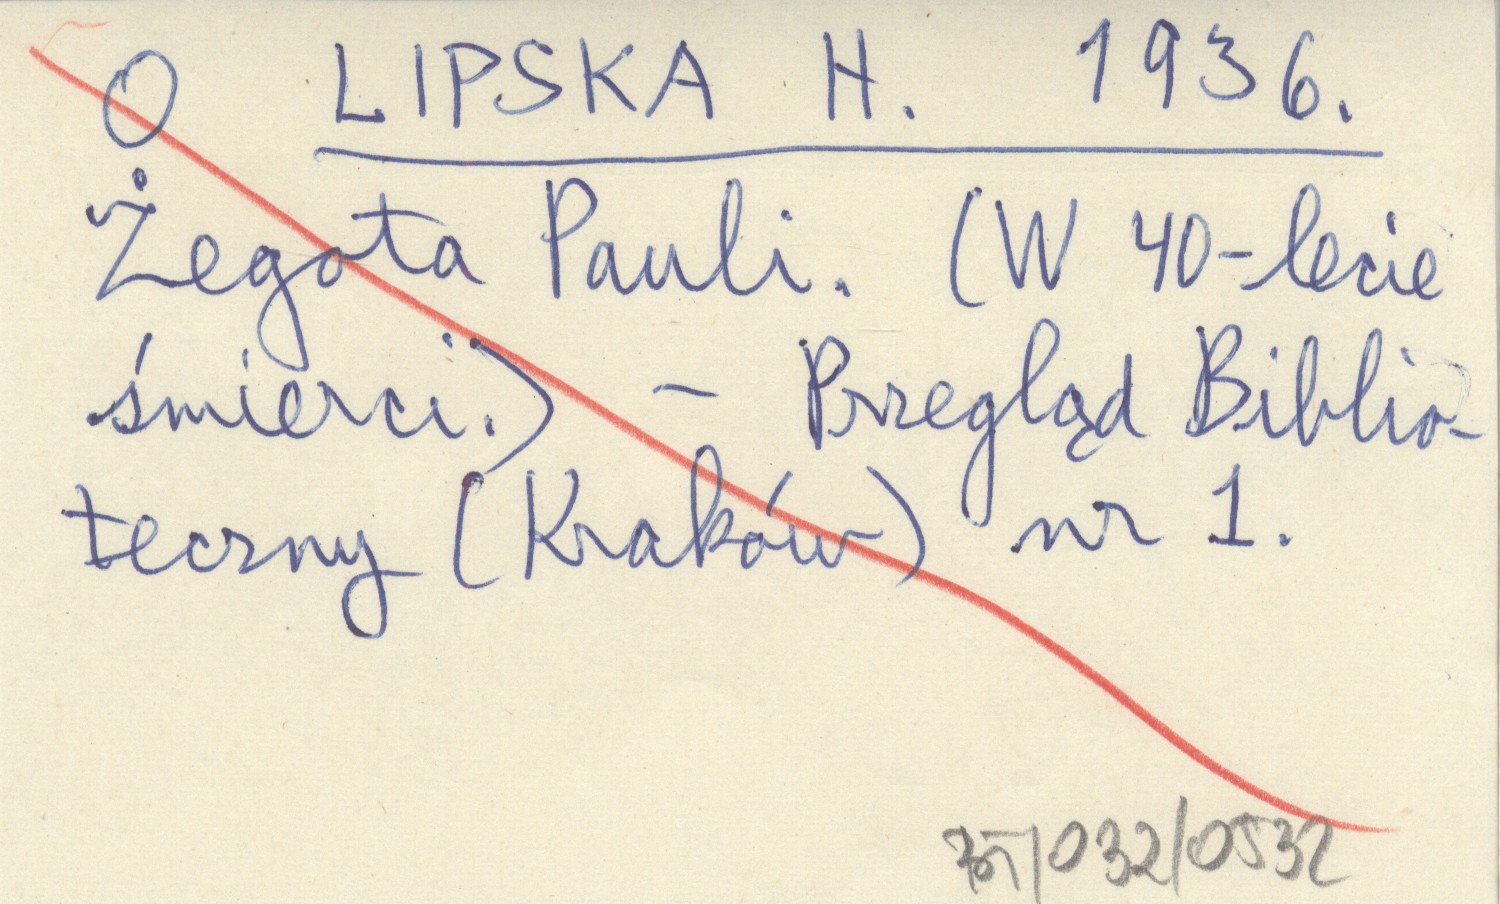 O LIPSKA H. 1936.
Żegota Pauli. (W 40-lecie
śmierci.) – Przegląd Biblio-
teczny (Kraków) nr 1.
/032/0532